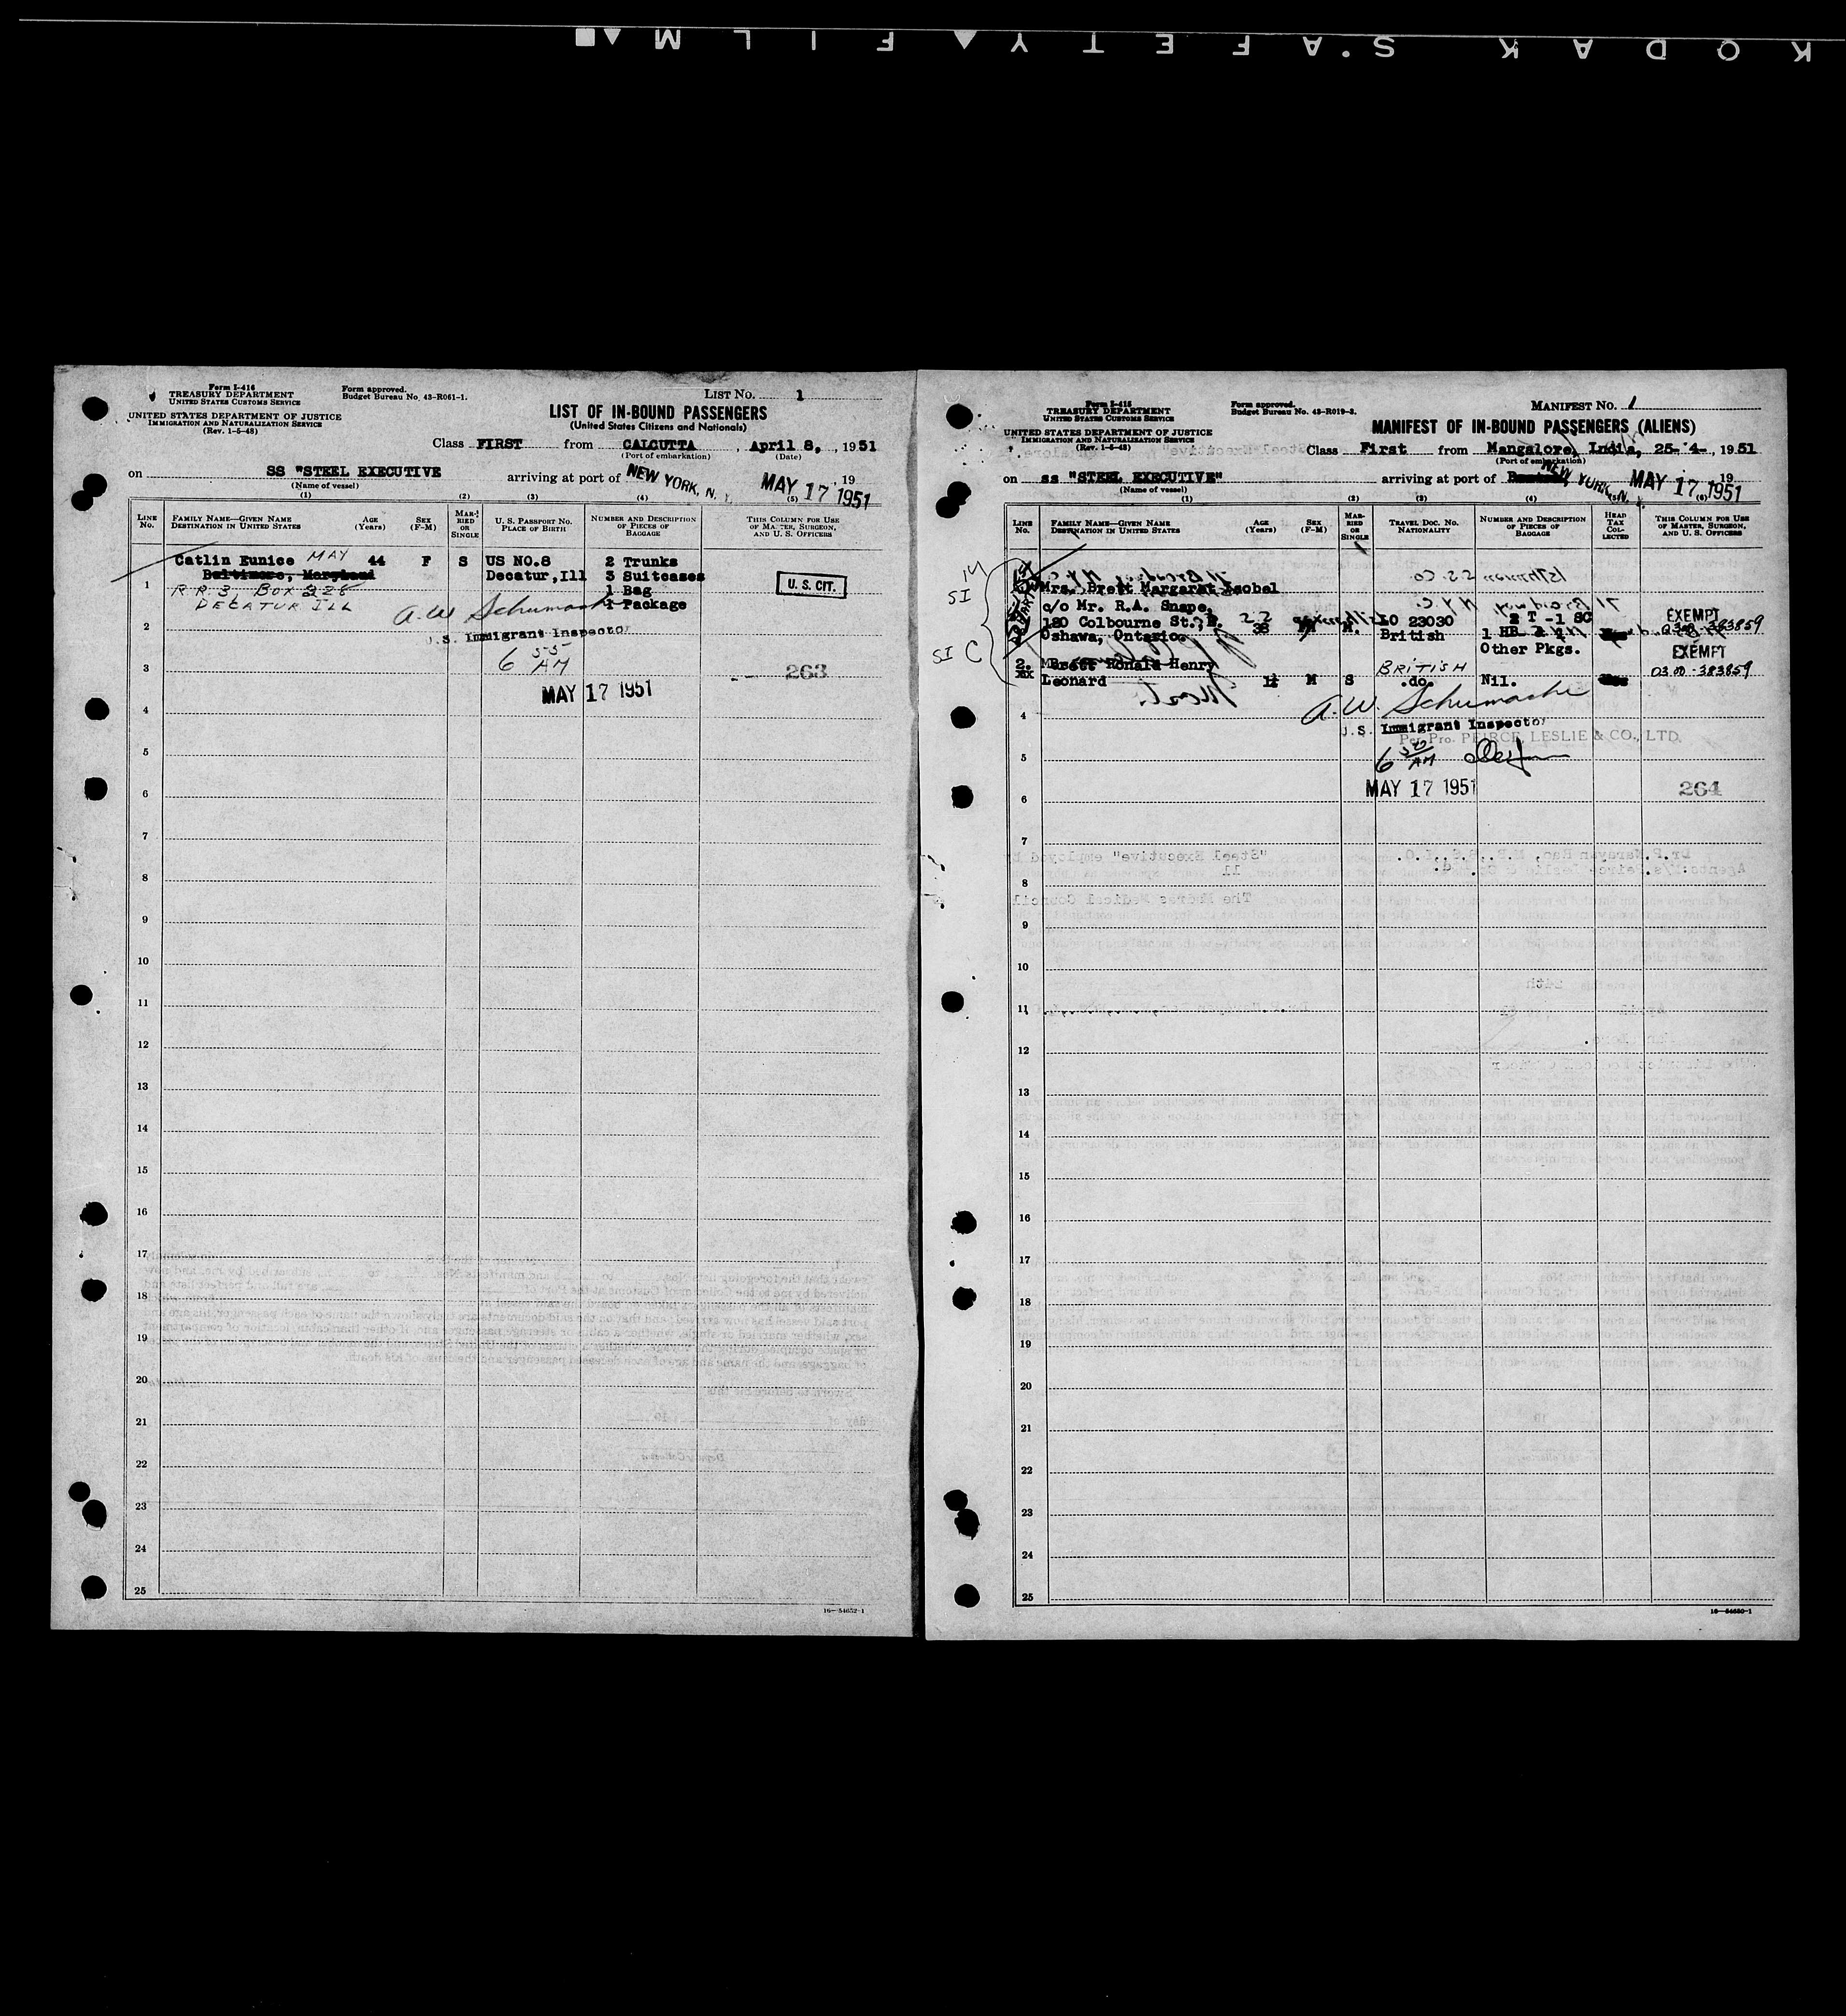 KODAK SAFETY FILM
Form I-416
TREASURY DEPARTMENT
UNITED STATES CUSTOMS SERVICE
UNITED STATES DEPARTMENT OF JUSTICE
IMMIGRATION AND NATURALIZATION SERVICE
(Rev. 1-5-48)
Form approved.
Budget Bureau No. 43-R061-1.
LIST No. 1
LIST OF IN-BOUND PASSENGERS
(United States Citizens and Nationals)
Class FIRST from CALCUTTA, April 8, 1951
(Port of embarkation) (Date)
on SS "STEEL EXECUTIVE arriving at port of NEW YORK, N. Y. MAY 17 1951, 19
(Name of vessel)
(1) (2) (3) (4) (5)
LINE No. FAMILY NAME—GIVEN NAME DESTINATION IN UNITED STATES AGE (Years) SEX (F-M) MARRIED OR SINGLE U. S. PASSPORT NO. PLACE OF BIRTH NUMBER AND DESCRIPTION OF PIECES OF BAGGAGE THIS COLUMN FOR USE OF MASTER, SURGEON, AND U. S. OFFICERS
Catlin Eunice MAY 44 F S US NO.8 2 Trunks
Baltimore, Maryland Decatur,Ill 3 Suitcases
1 R.R. 3, Box 228 1 Bag U. S. CIT.
DECATUR ILL 1 Package
A.W. Schumache
2 U.S. Immigrant Inspector
6 55 AM
3 263
MAY 17 1951
4
5
6
7
8
9
10
11
12
13
14
15
16
17
18
19
20
21
22
23
24
25
16—54652-1
Form I-415
TREASURY DEPARTMENT
UNITED STATES CUSTOMS SERVICE
UNITED STATES DEPARTMENT OF JUSTICE
IMMIGRATION AND NATURALIZATION SERVICE
(Rev. 1-5-48)
Form approved.
Budget Bureau No. 43-R019-3.
MANIFEST No. 1
MANIFEST OF IN-BOUND PASSENGERS (ALIENS)
Class First from Mangalore, India, 25-4-, 1951
(Port of embarkation)
on ss "STEEL EXECUTIVE" arriving at port of NEW YORK, N. MAY 17 1951, 19
(Name of vessel)
(1) (2) (3) (4) (5) (6)
LINE No. FAMILY NAME—GIVEN NAME DESTINATION IN UNITED STATES AGE (Years) SEX (F-M) MARRIED OR SINGLE TRAVEL DOC. NO. NATIONALITY NUMBER AND DESCRIPTION OF PIECES OF BAGGAGE HEAD TAX COLLECTED THIS COLUMN FOR USE OF MASTER, SURGEON, AND U. S. OFFICERS
SI
Mrs. Brett Margaret Isobel
c/o Mr. R.A. Snape,
180 Colbourne St., E. LO 23030 2 T -1 SC EXEMPT
Oshawa, Ontario. 38 M. British 1 HB 0300-383859
Other Pkgs. EXEMPT
SI C 2. Brett Ronald Henry BRITISH 0300-383859
Leonard 1½ M S .do. Nil.
4 A.W. Schumache
U.S. Immigrant Inspector
Per Pro. PEIRCE, LESLIE & CO., LTD.
5 6 AM
6 MAY 17 1951 264
7
8
9
10
11
12
13
14
15
16
17
18
19
20
21
22
23
24
25
16—54650-1